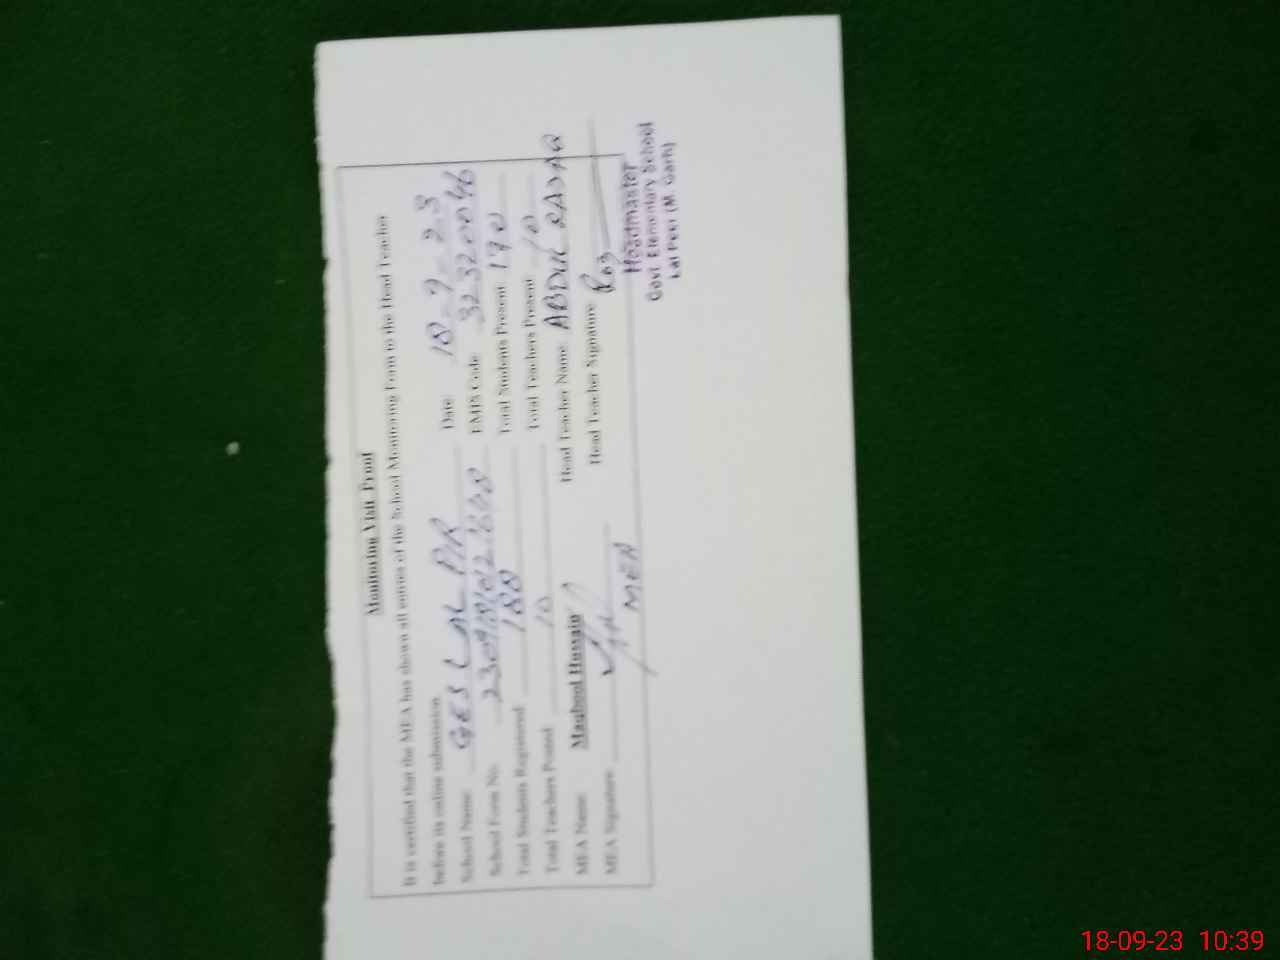 Monitoring Visit Proof
It is certified that the MEA has shown all entries of the School Monitoring Form to the Head Teacher
before its online submission.
School Name: GES LAL PIR Date 18-9-23
School Form No. EMIS Code 32320046
Total Students Registered 188 Total Students Present 170
Total Teachers Posted 10 Total Teachers Present 10
MEA Name: Maqbool Hussain Head Teacher Name: ABDUL RAZAQ
MEA Signature Head Teacher Signature
MEA
Headmaster
Govt Elementary School
Lal Peer (M. Garh)
18-09-23 10:39